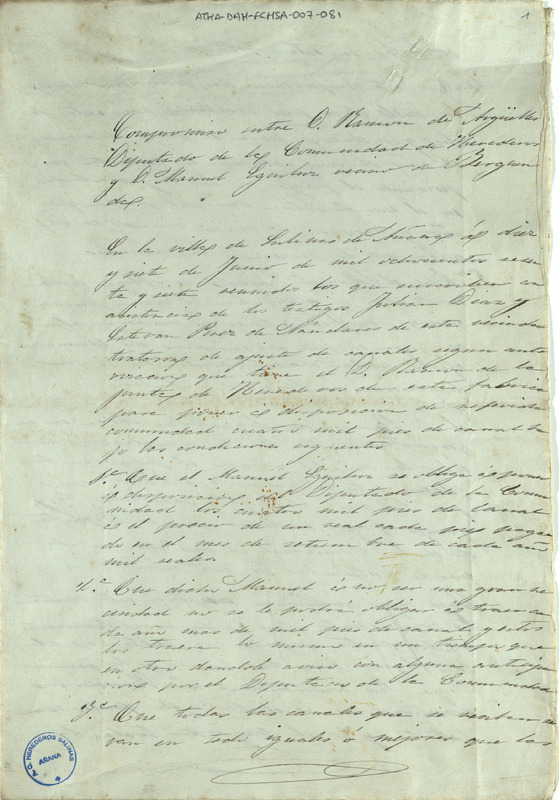 ATHA-DAH-FCHSA-007-081
1
Compromiso entre D. Ramon de Argüelles
Diputado de la Comunidad de Herederos
y D. Manuel Eguiluz vecino de Berguen
des.
En la villa de Salinas de Añana á diez
y siete de Junio de mil ochocientos sesen
ta y siete reunidos los que suscriben con
asistencia de los testigos Julian Diaz y
Estevan Perez de Nanclares de esta vecindad
trataron de ajuste de canales segun auto
rizacion que tiene el D. Ramon de la
junta de Herederos de esta fabrica
para poner á disposicion de referida
comunidad cuatro mil pies de canal ba
jo las condiciones siguientes
1.ª Que el Manuel Eguiluz se obliga á poner
á disposicion del Diputado de la Comu
nidad los cuatro mil pies de canal
á el precio de un real cada pie pagan
do en el mes de setiembre de cada año
mil reales.
2.ª Que dicho Manuel á no ser una gran ne
cesidad no se le podrá obligar á traer ca
da año mas de mil pies de canal y estos
los traera lo mismo en un tiempo que
en otro dandole aviso con alguna antici
pacion por el Diputado de la Comunidad
3.ª Que todas las canales que se reciban
van en todo yguales ó mejores que las
HEREDEROS SALINAS
ARANA